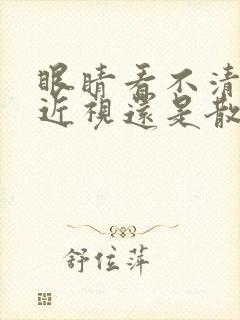 眼睛看不清
近視還是散
舒位萍